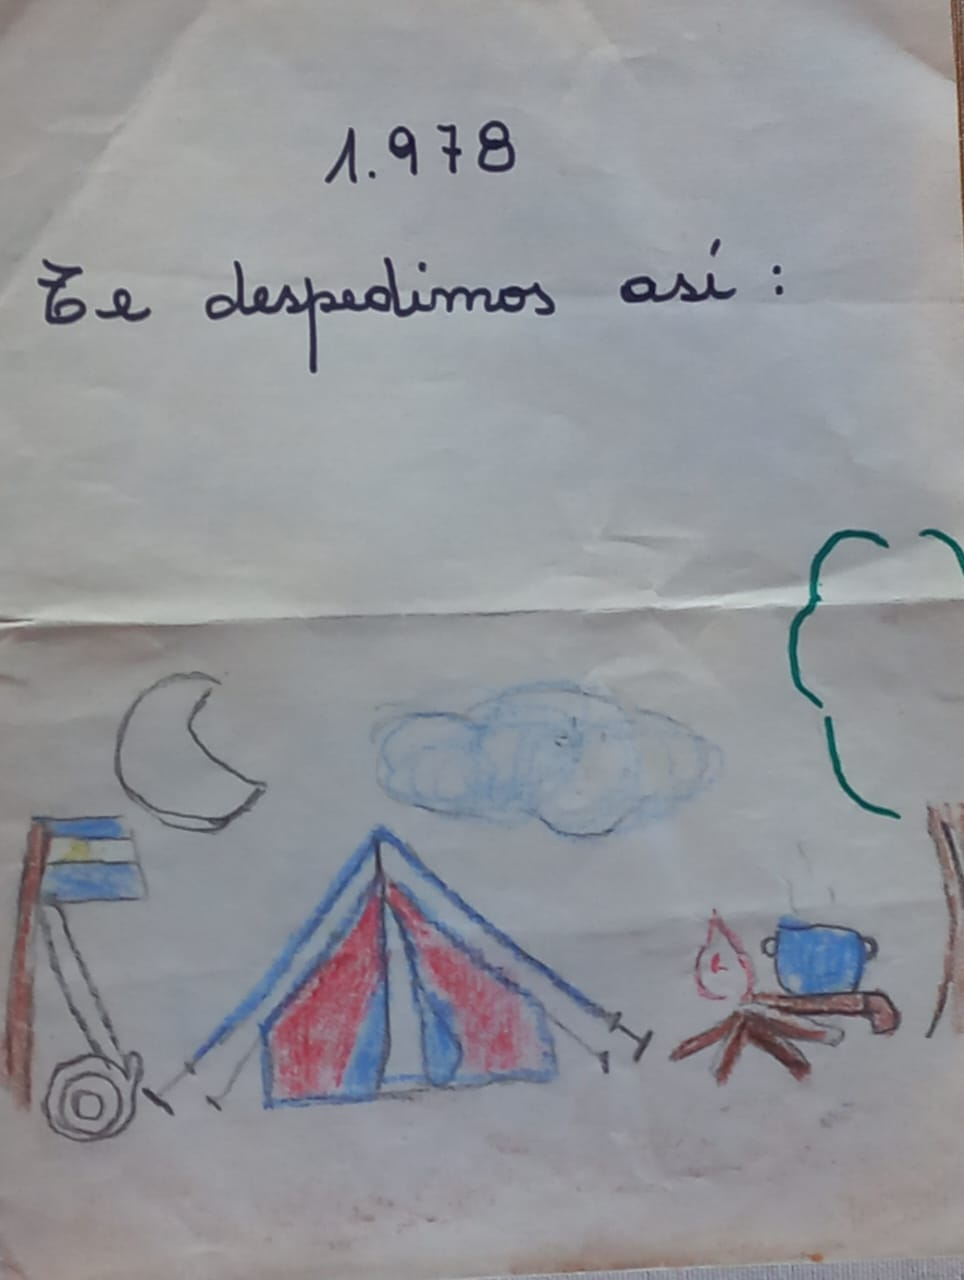 1.978
Te despedimos así: